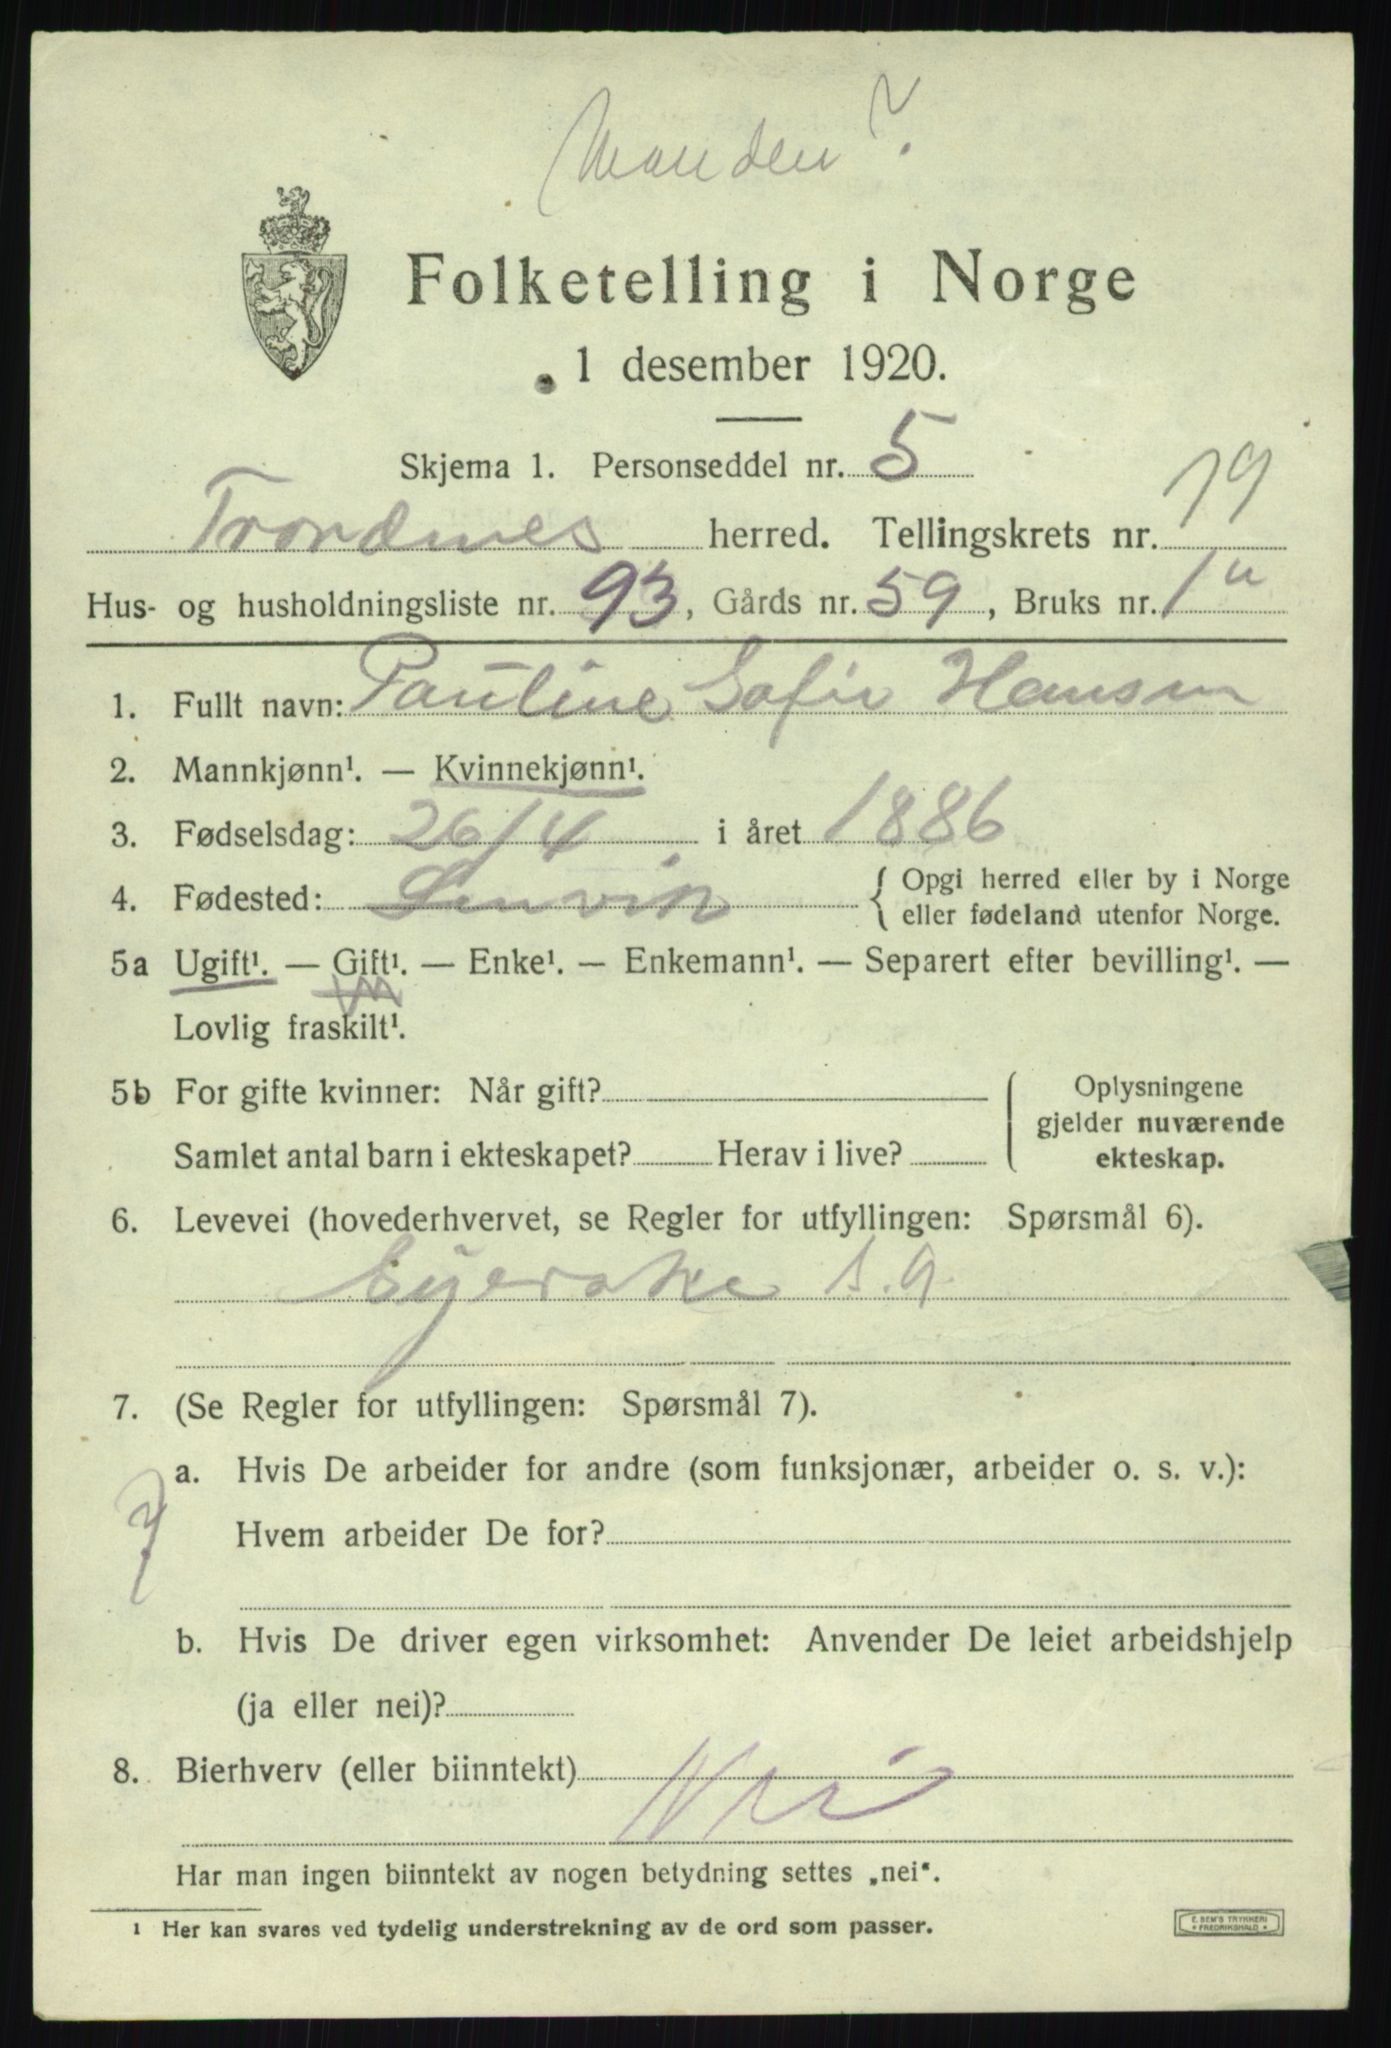 Manden?
Folketelling i Norge
1 desember 1920.
Skjema 1. Personseddel nr. 5
Trondenes herred. Tellingskrets nr. 19
Hus- og husholdningsliste nr. 93, Gårds nr. 59, Bruks nr. 1
1. Fullt navn: Pauline Sofie Hansen
2. Mannkjønn¹. — Kvinnekjønn¹.
3. Fødselsdag: 26/4 i året 1886
4. Fødested: Lenvik { Opgi herred eller by i Norge
eller fødeland utenfor Norge.
5a Ugift¹. — Gift¹. — Enke¹. — Enkemann¹. — Separert efter bevilling¹. —
Lovlig fraskilt¹.
5b For gifte kvinner: Når gift?
Samlet antal barn i ekteskapet? Herav i live?
Oplysningene
gjelder nuværende
ekteskap.
6. Levevei (hovederhvervet, se Regler for utfyllingen: Spørsmål 6).
s. g.
7. (Se Regler for utfyllingen: Spørsmål 7).
a. Hvis De arbeider for andre (som funksjonær, arbeider o. s. v.):
?
Hvem arbeider De for?
b. Hvis De driver egen virksomhet: Anvender De leiet arbeidshjelp
(ja eller nei)?
8. Bierhverv (eller biinntekt) Nei
Har man ingen biinntekt av nogen betydning settes „nei“.
¹ Her kan svares ved tydelig understrekning av de ord som passer.
E. SEM'S TRYKKERI
FREDRIKSHALD